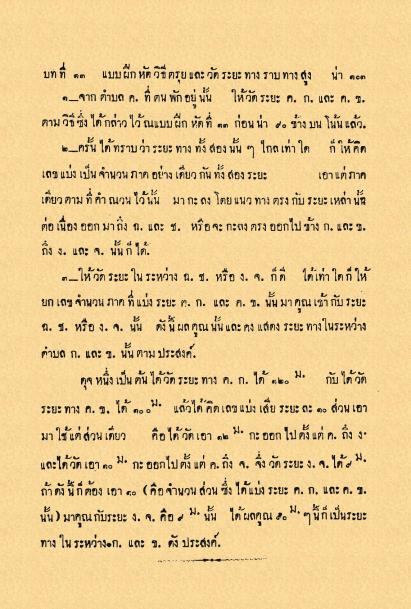 บทที่ ๑๓ แบบฝึกหัดวิธีตรุยและวัดระยะทางราบทางสูง น่า ๑๐๓
๑_จากตำบล ค. ที่ตนพักอยู่นั้น ให้วัดระยะ ค. ก. และ ค. ข.
ตามวิธีซึ่งได้กล่าวไว้ณแบบฝึกหัดที่ ๑๓ ก่อนน่า ๙๐ ข้างบนโน้นแล้ว.
๒_ครั้นได้ทราบว่าระยะทางทั้งสองนั้น ๆ ไกลเท่าใด ก็ให้คิด
เลขแบ่งเป็นจำนวนภาคอย่างเดียวกันทั้งสองระยะ เอาแต่ภาค
เดียวตามที่คำณวนไว้นั้น มากะลงโดยแนวทางตรงกับระยะเหล่านั้น
ต่อเนื่องออกมาถึง ฉ. และ ช. หรือจะกะลงตรงออกไปข้าง ก. และ ข.
ถึง ง. และ จ. นั้นก็ได้.
๓_ให้วัดระยะในระหว่าง ฉ. ช. หรือ ง. จ. ก็ดี ได้เท่าใดก็ให้
ยกเลขจำนวนภาคที่แบ่งระยะ ค. ก. และ ค. ข. นั้นมาคุณเข้ากับระยะ
ฉ. ช. หรือ ง. จ. นั้น ดังนี้ผลคุณนั้นและคงแสดงระยะทางในระหว่าง
ตำบล ก. และ ข. นั้นตามประสงค์.
ดุจหนึ่งเป็นต้นได้วัดระยะทาง ค. ก. ได้ ๑๒๐ ม. กับได้วัด
ระยะทาง ค. ข. ได้ ๑๐๐ ม. แล้วได้คิดเลขแบ่งเสียระยะละ ๑๐ ส่วนเอา
มาใช้แต่ส่วนเดียว คือได้วัดเอา ๑๒ ม. กะออกไปตั้งแต่ ค. ถึง ง.
และได้วัดเอา ๑๐ ม. กะออกไปตั้งแต่ ค. ถึง จ. จึ่งวัดระยะ ง. จ. ได้ ๙ ม.
ถ้าดังนี้ก็ต้องเอา ๑๐ (คือจำนวนส่วนซึ่งได้แบ่งระยะ ค. ก. และ ค. ข.
นั้น) มาคุณกับระยะ ง. จ. คือ ๙ ม. นั้น ได้ผลคุณ ๙๐ ม. ๆ นี้ก็เป็นระยะ
ทางในระหว่าง ก. และ ข. ดังประสงค์.